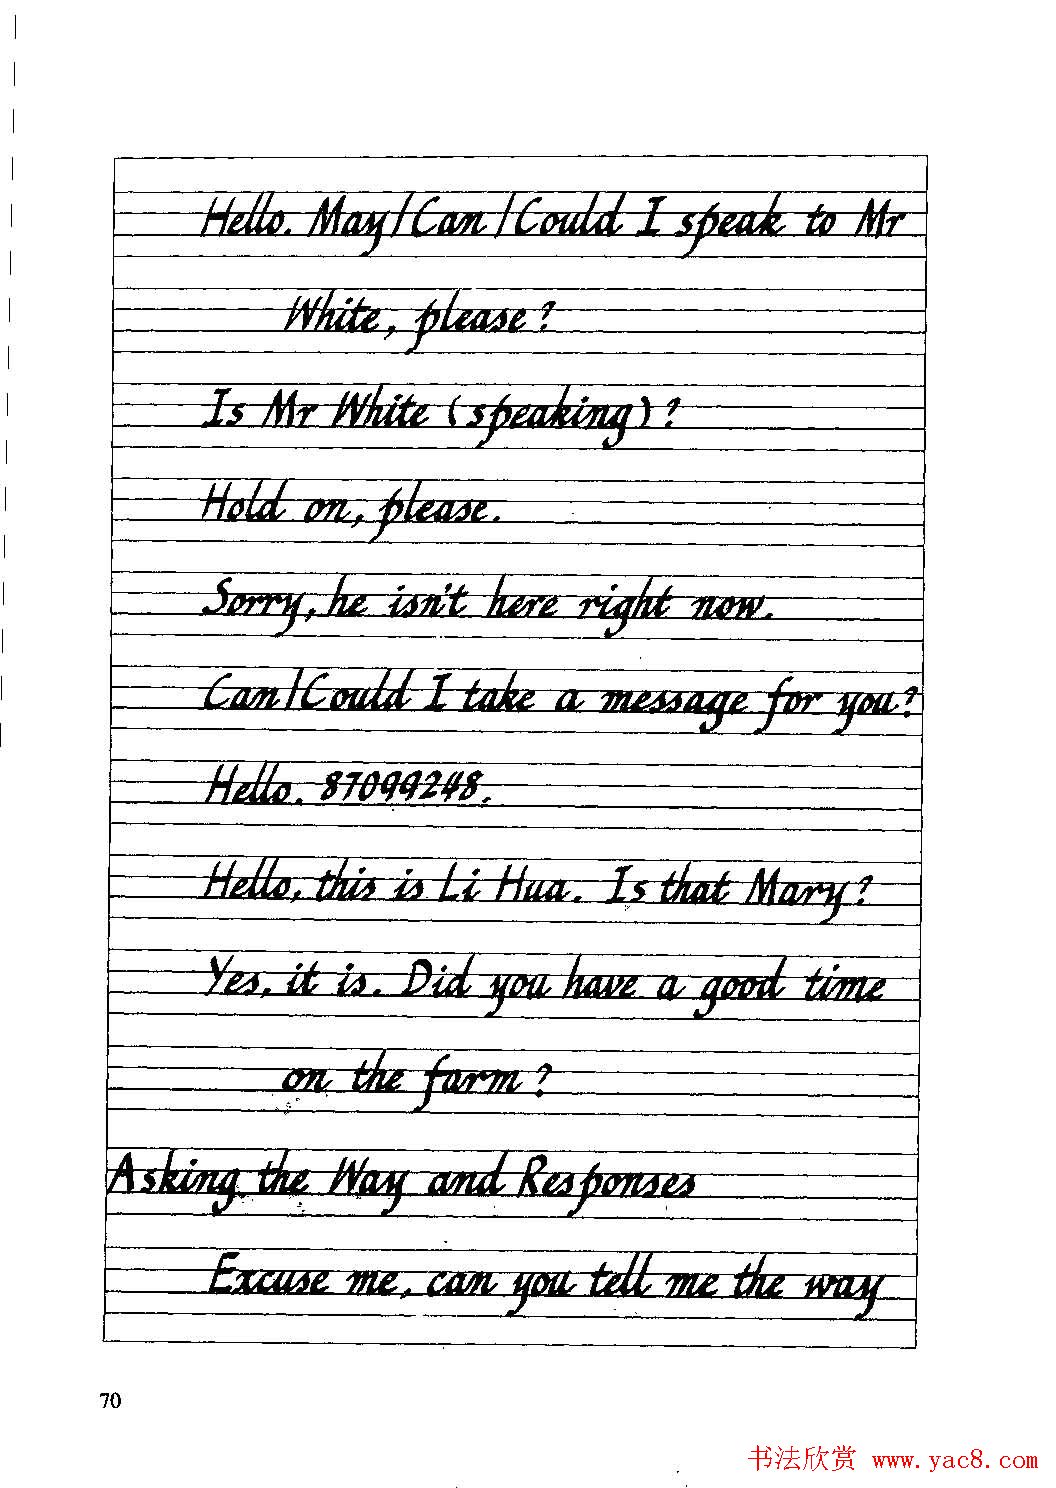 Hello. May/Can/Could I speak to Mr
White, please?
Is Mr White (speaking)?
Hold on, please.
Sorry, he isn't here right now.
Can/Could I take a message for you?
Hello. 87099248.
Hello, this is Li Hua. Is that Mary?
Yes, it is. Did you have a good time
on the farm?
Asking the Way and Responses
Excuse me, can you tell me the way
70
书法欣赏 www.yac8.com